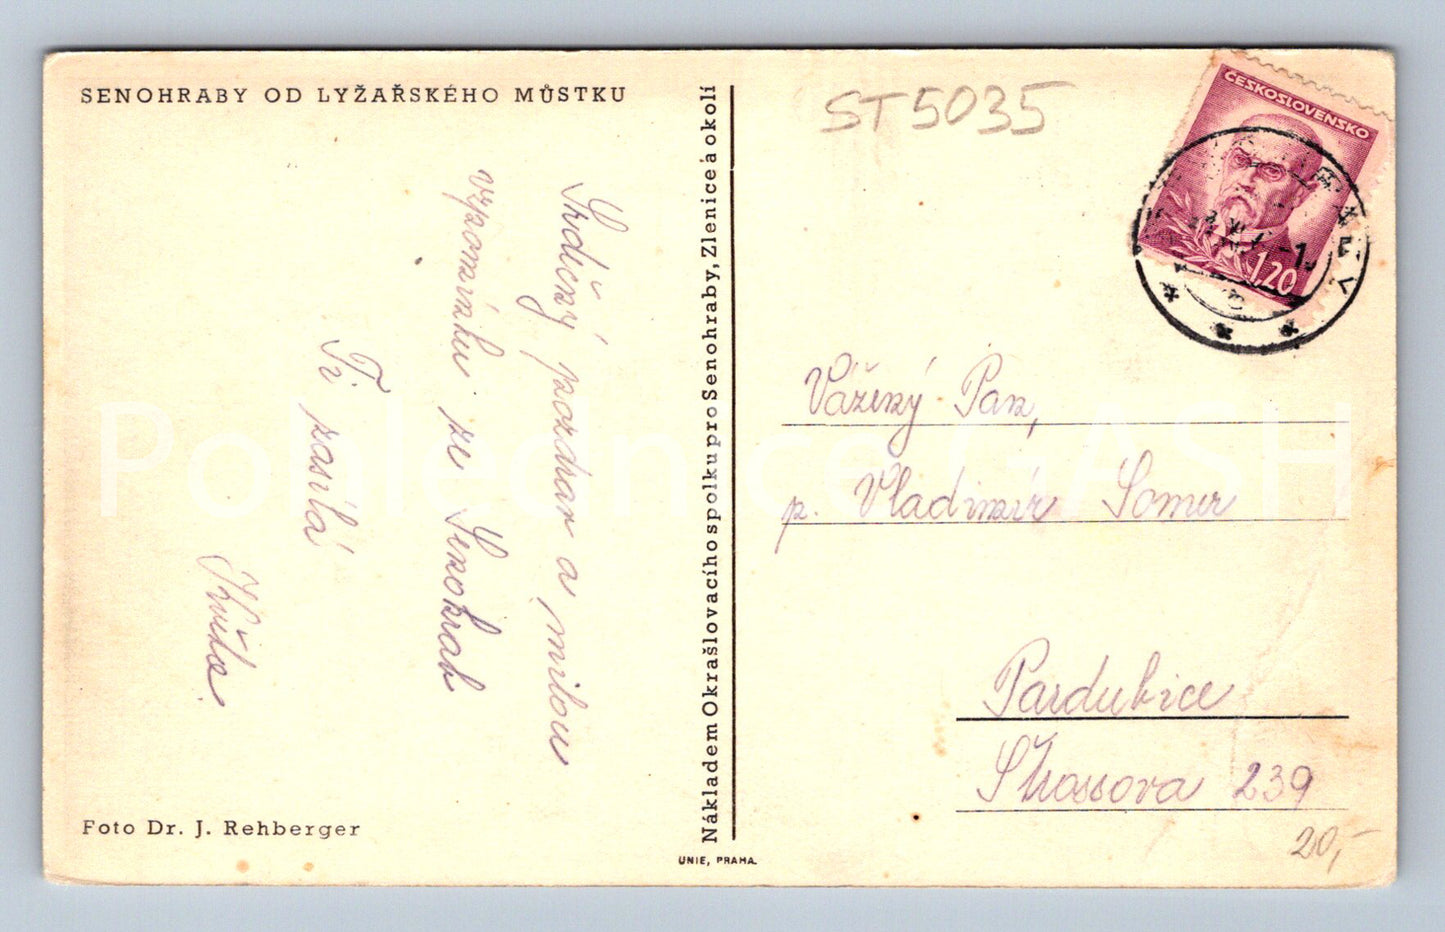 SENOHRABY OD LYŽAŘSKÉHO MŮSTKU
Srdečný pozdrav a milou
vzpomínku ze Senohrab
Ti zasílá
Květa.
Foto Dr. J. Rehberger
Nákladem Okrašlovacího spolku pro Senohraby, Zlenice a okolí
UNIE, PRAHA.
ST5035
ČESKOSLOVENSKO
1,20
Vážený Pan,
p. Vladimír Somer
Pardubice
Štrossova 239
20,-
Pohlednice GASH